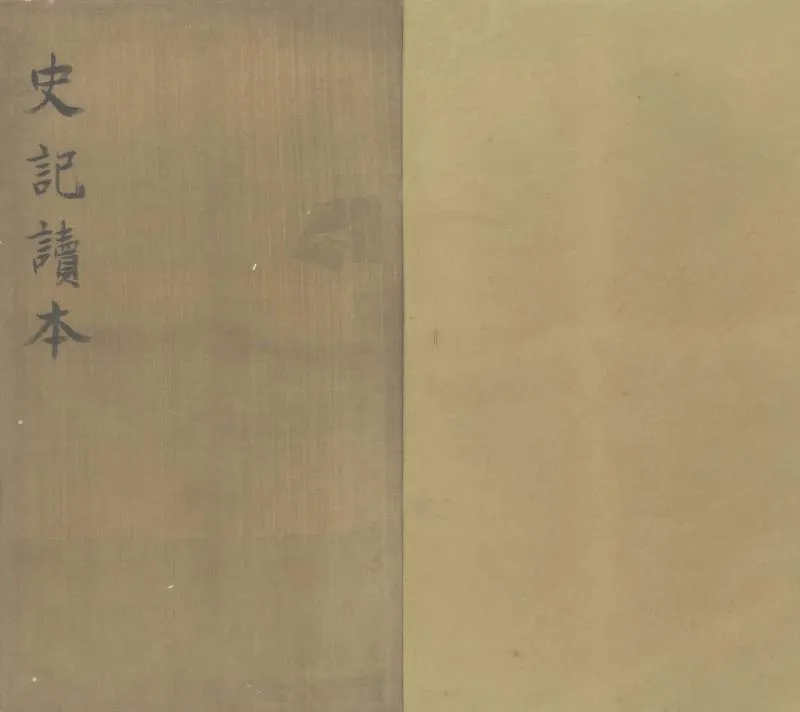 史記讀本